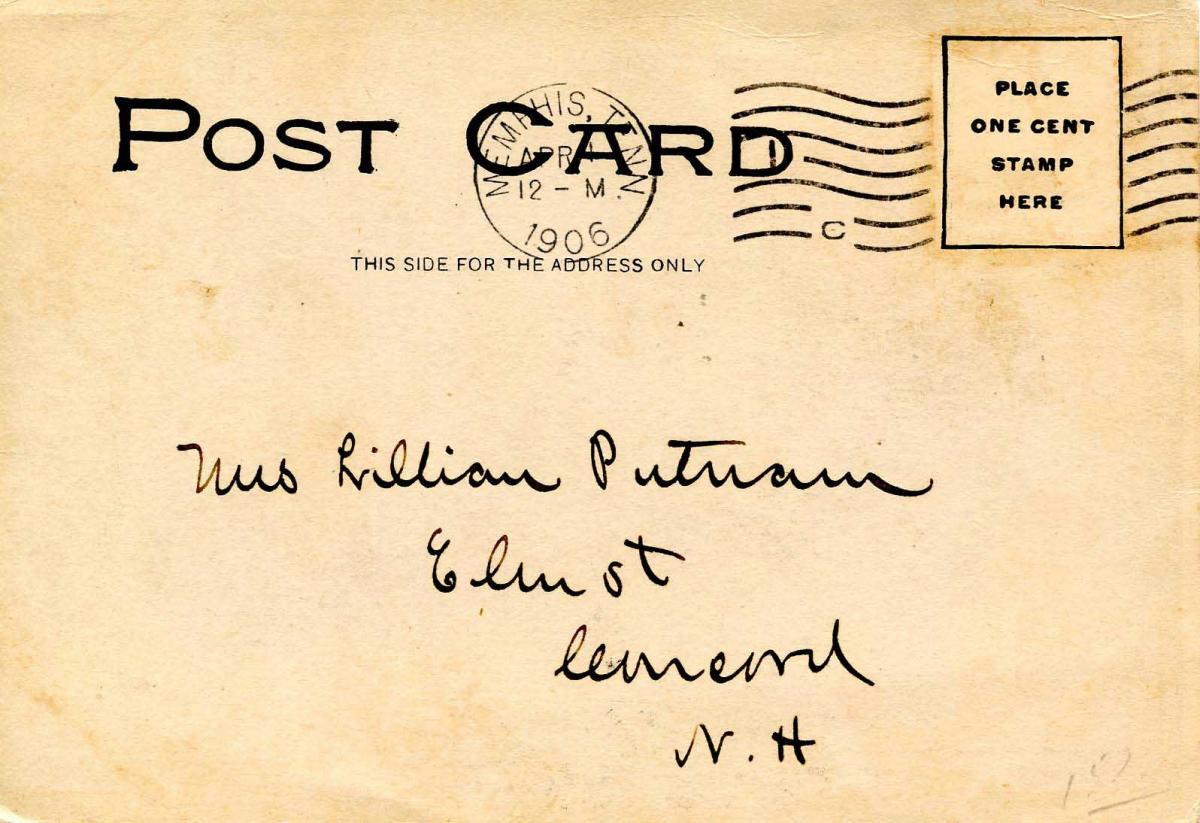 POST CARD
MEMPHIS, TENN
APR
12 - M.
1906
C
PLACE
ONE CENT
STAMP
HERE
THIS SIDE FOR THE ADDRESS ONLY
Mrs Lillian Putnam
Elm st
Concord
N. H